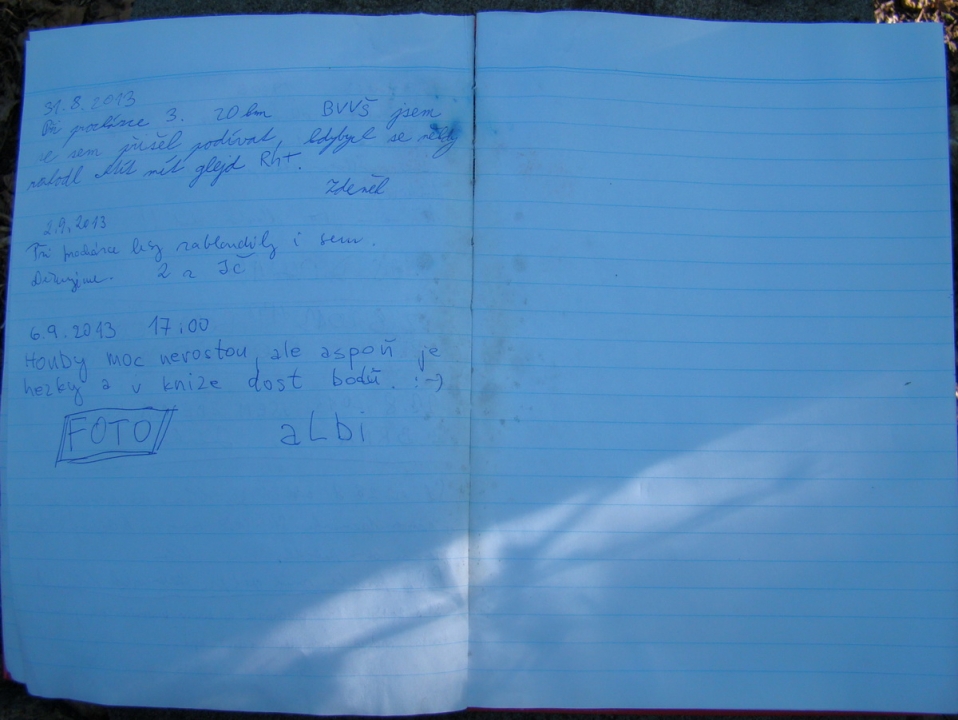 31.8.2013
Při procházce 3. 20 km BVVŠ jsem
se sem přišel podívat, kdyby se
chtít mít glejd
Zdeněk
2.9.2013
Při procházce lesy zabloudily i sem.
Děkujeme. 2 z JČ
6.9.2013 17:00
Houby moc nerostou, ale aspoň je
hezky a v knize dost bodů. :-)
FOTO aLbi